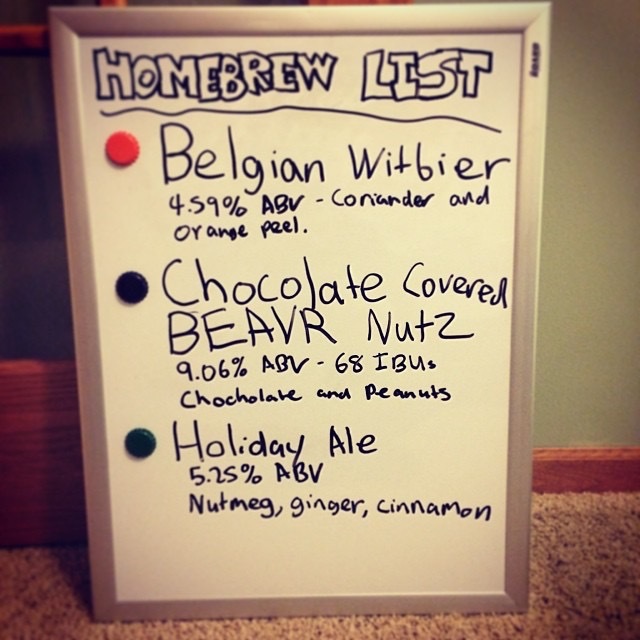 HOMEBREW LIST
Belgian Witbier
4.59% ABV - Coriander and
Orange peel.
Chocolate Covered
BEAVR Nutz
9.06% ABV - 68 IBUs
Chocholate and Peanuts
Holiday Ale
5.25% ABV
Nutmeg, ginger, cinnamon